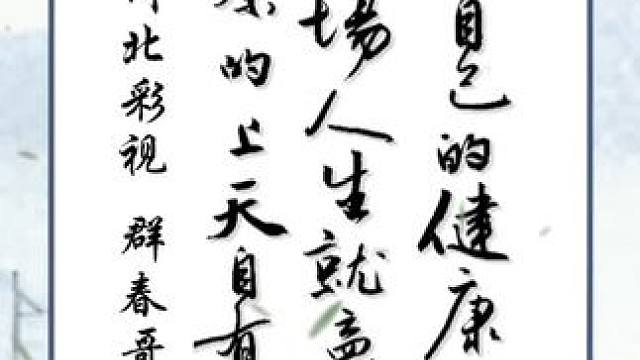 自己的健康
場人生就
的上天自有
北彩視 群春哥